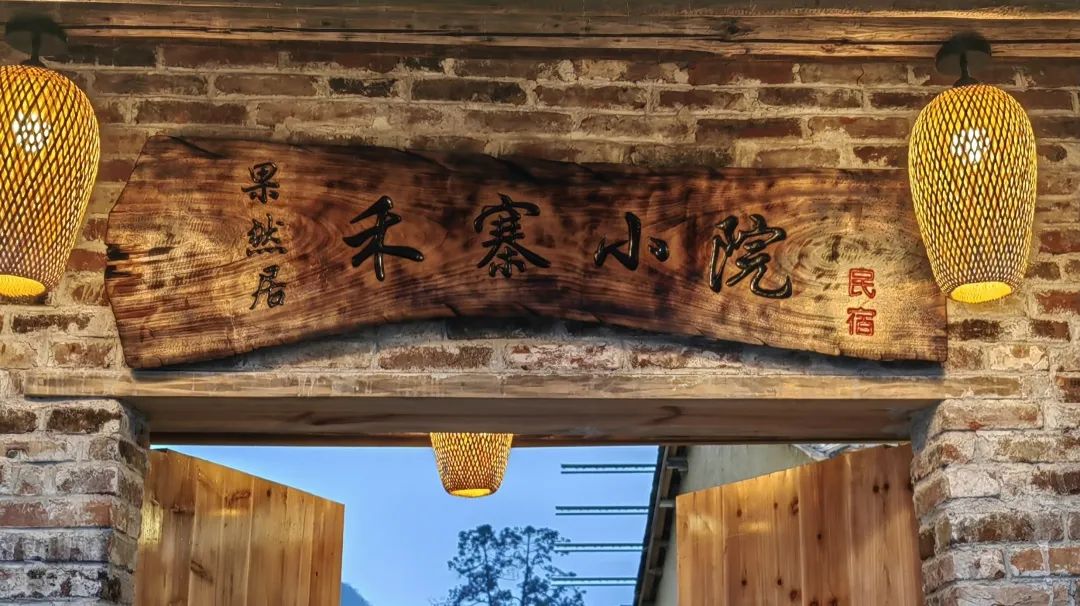 果然居
禾寨小院
民宿